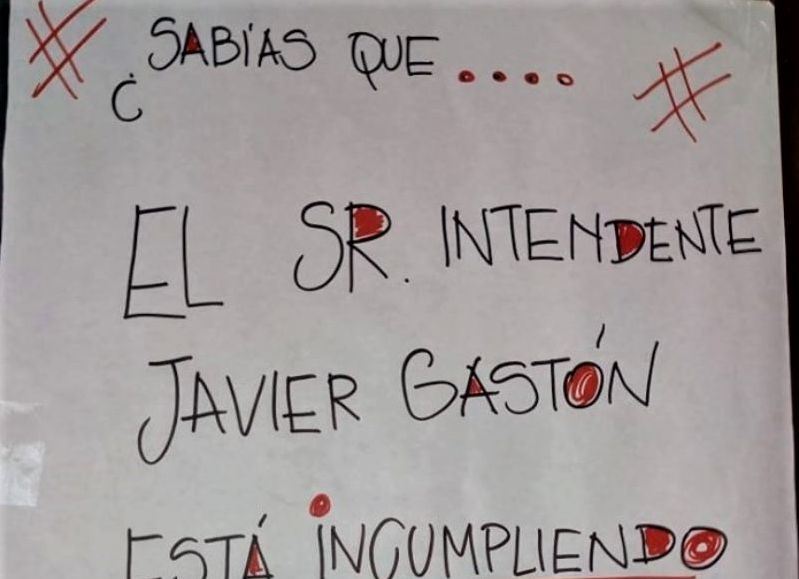 # ¿SABÍAS QUE.... #
EL SR. INTENDENTE
JAVIER GASTÓN
ESTÁ INCUMPLIENDO